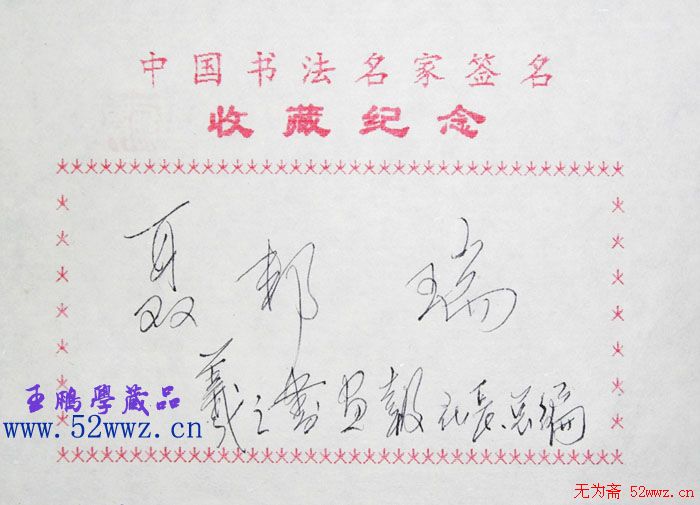 中国书法名家签名
收藏纪念
聂邦瑞
羲之书画报社长总编
王鹏學藏品
www.52wwz.cn
无为斋 52wwz.cn